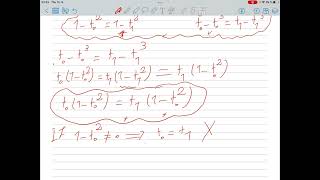 1-t₀² = 1-t₁² t₀-t₀³ = t₁-t₁³
t₀-t₀³ = t₁-t₁³
t₀(1-t₀²) = t₁(1-t₁²) = t₁(1-t₀²)
t₀(1-t₀²) = t₁(1-t₀²)
If 1-t₀² ≠ 0 ⟹ t₀ = t₁ X